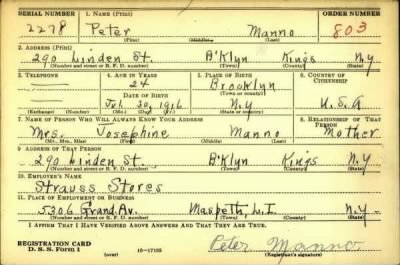 SERIAL NUMBER 1. NAME (Print) ORDER NUMBER
2278 Peter Manno 803
(First) (Middle) (Last)
2. ADDRESS (Print)
290 Linden St. B'Klyn Kings N.Y
(Number and street or R. F. D. number) (Town) (County) (State)
3. TELEPHONE 4. AGE IN YEARS 5. PLACE OF BIRTH 6. COUNTRY OF CITIZENSHIP
24 Brooklyn
DATE OF BIRTH (Town or county)
30, 1916 N.Y U.S.A
(Exchange) (Number) (Mo.) (Day) (Yr.) (State or country)
7. NAME OF PERSON WHO WILL ALWAYS KNOW YOUR ADDRESS 8. RELATIONSHIP OF THAT PERSON
Mrs. Josephine Manno Mother
(Mr., Mrs., Miss) (First) (Middle) (Last)
9. ADDRESS OF THAT PERSON
290 Linden St. B'Klyn Kings N.Y
(Number and street or R. F. D. number) (Town) (County) (State)
10. EMPLOYER'S NAME
Strauss Stores
11. PLACE OF EMPLOYMENT OR BUSINESS
5306 Grand Av. Maspeth, L.I. N.Y
(Number and street or R. F. D. number) (Town) (County) (State)
I AFFIRM THAT I HAVE VERIFIED ABOVE ANSWERS AND THAT THEY ARE TRUE.
REGISTRATION CARD
D. S. S. Form 1 (over) 16-17105 Peter Manno
(Registrant's signature)